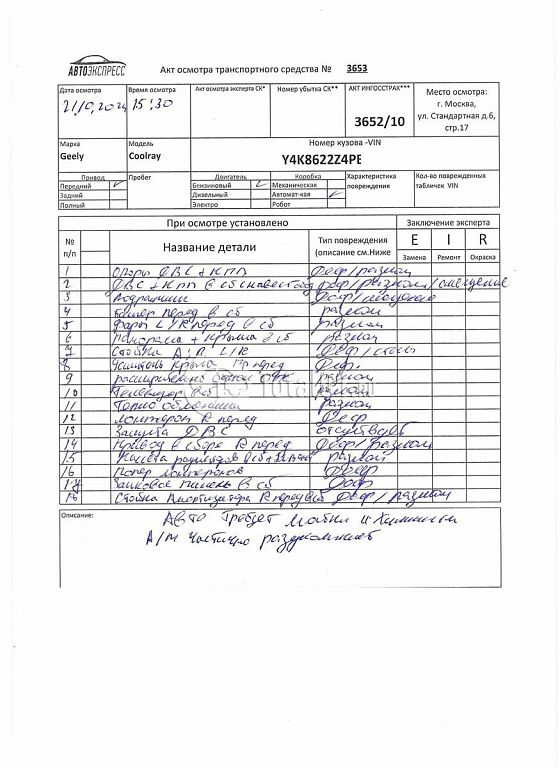 АВТОЭКСПРЕСС
Акт осмотра транспортного средства № 3653
Дата осмотра
Время осмотра 15:30
Акт осмотра эксперта СК*
Номер убытка СК**
АКТ ИНГОССТРАХ***
3652/10
Место осмотра:
г. Москва,
ул. Стандартная д.6,
стр.17
Марка
Geely
Модель
Coolray
Номер кузова -VIN
Y4K8622Z4PE
Привод
Передний
Задний
Полный
Пробег
Двигатель
Бензиновый
Дизельный
Электро
Коробка
Механическая
Автомат-кая
Робот
Характеристика
повреждения
Кол-во поврежденных
табличек VIN
При осмотре установлено
Заключение эксперта
№
п/п
Название детали
Тип повреждения
(описание см.Ниже
E I R
Замена Ремонт Окраска
1 опоры ДВС + КПП Деф/разлом
2 ДВС + КПП в сб деф/разлом/смещение
3 Подрамник Деф/смещение
4 бампер перед в сб разлом
5 фары L/R перед в сб разлом
6 панорама + крыша в сб разлом
7 Стойка A;B L/R Деф/
8 крыла перед Деф.
9 разлом
10 Телевизор в сб разлом
11 разлом
12 лонжерон R перед Деф
13 Защита ДВС отсутствует
14 Привод в сборе R перед Деф/разлом
15 разлом
16 лонжеронов Деф
17 панель в сб Деф
18 Стойка Амортизатора R перед сб Деф/разлом
Описание:
Авто Требует мойки и химчистки
А/м частично